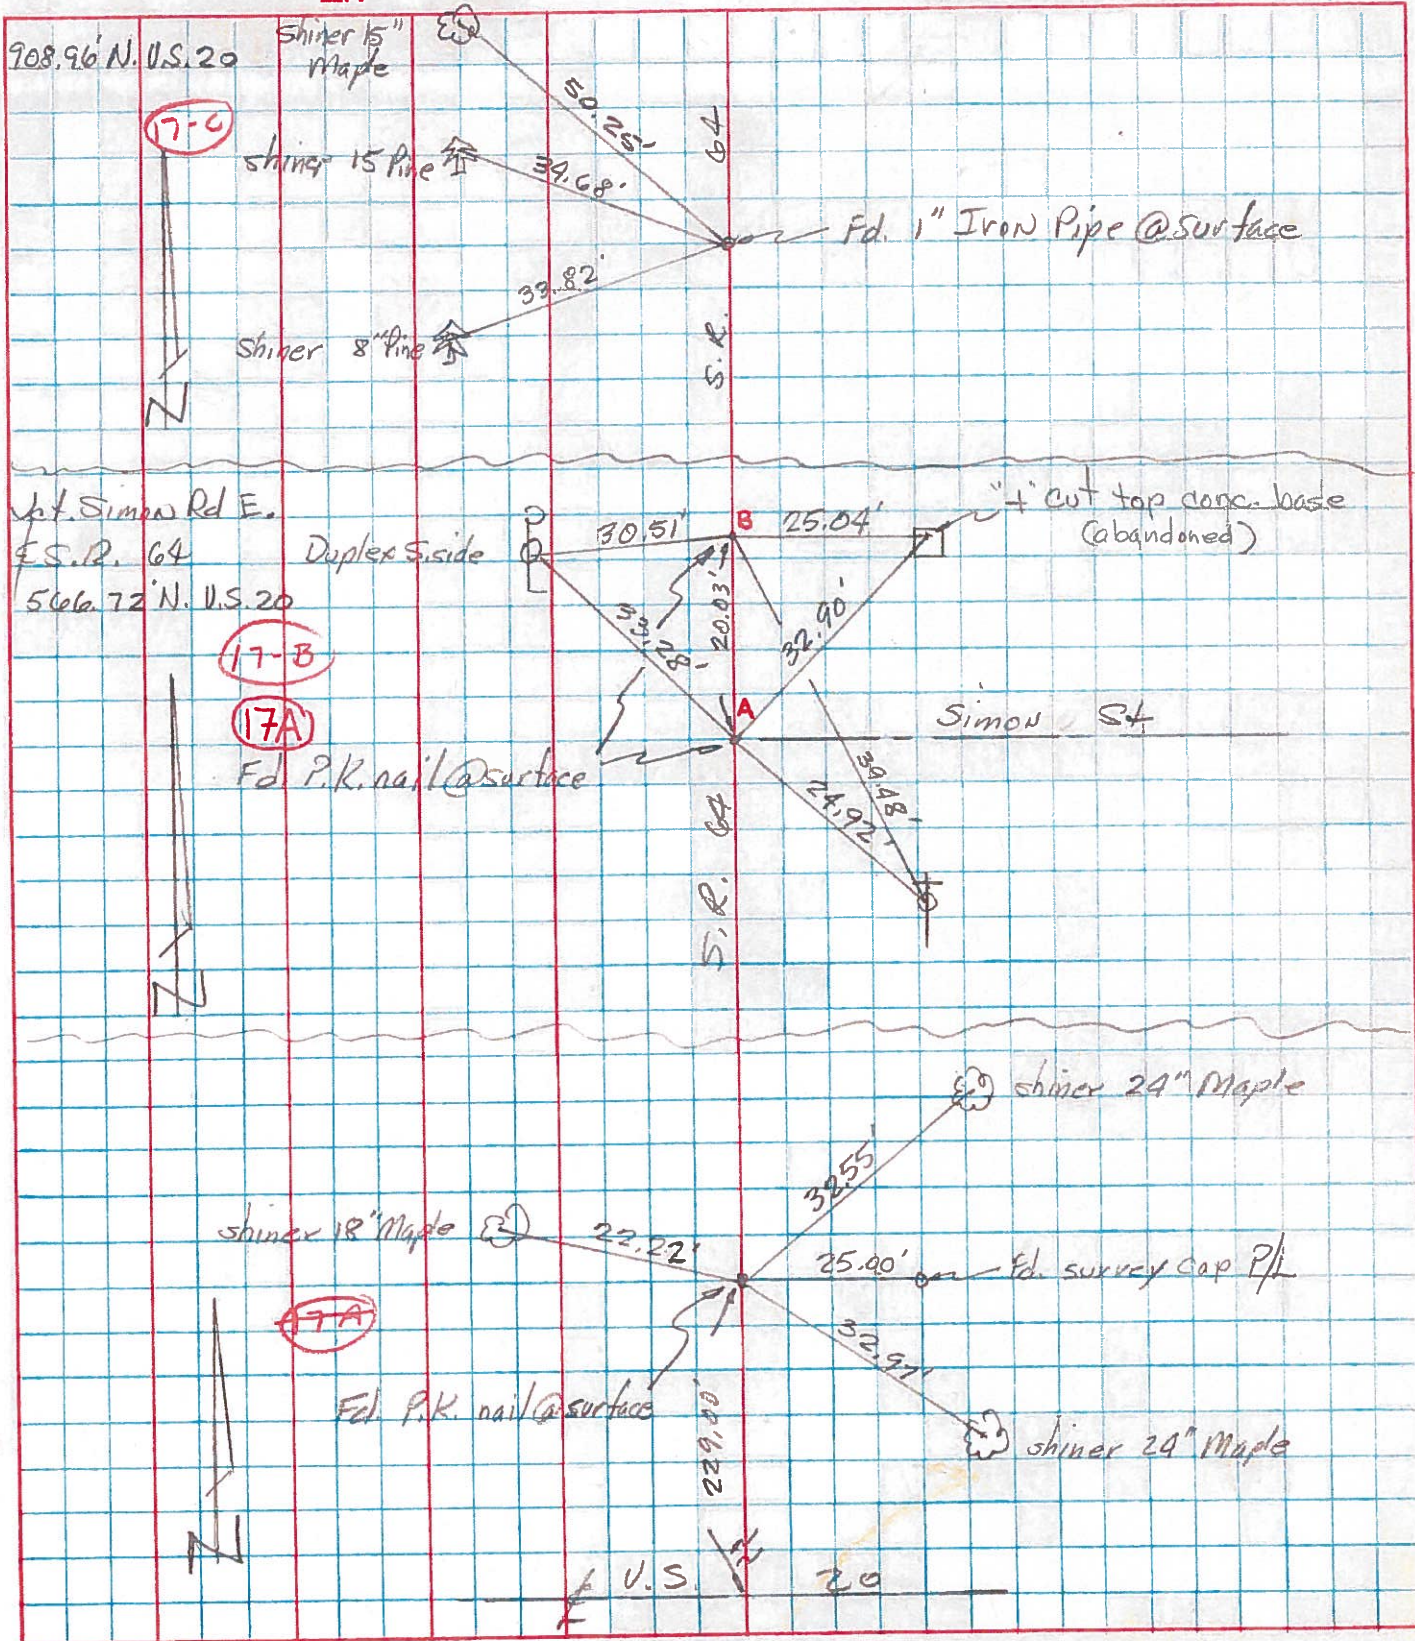 908.96' N. U.S. 20
Shiner 15"
Maple
17-C
50.25'
shiner 15 Pine
34.68'
S.R. 64
Fd. 1" Iron Pipe @ surface
33.82'
Shiner 8" Pine
N
Jct. Simon Rd E.
℄ S.R. 64
566.72' N. U.S. 20
Duplex S. side
30.51'
B
25.04'
"+" cut top conc. base
(abandoned)
20.03'
33.28'
32.90'
17-B
17A
A
Simon St
Fd. P.K. nail @ surface
39.48'
24.92'
S.R. 64
N
shiner 24" Maple
32.55'
shiner 18" Maple
22.22'
25.00'
Fd. survey cap P/L
17A
32.97'
Fd. P.K. nail @ surface
229.00'
shiner 24" Maple
N
℄ U.S. 20